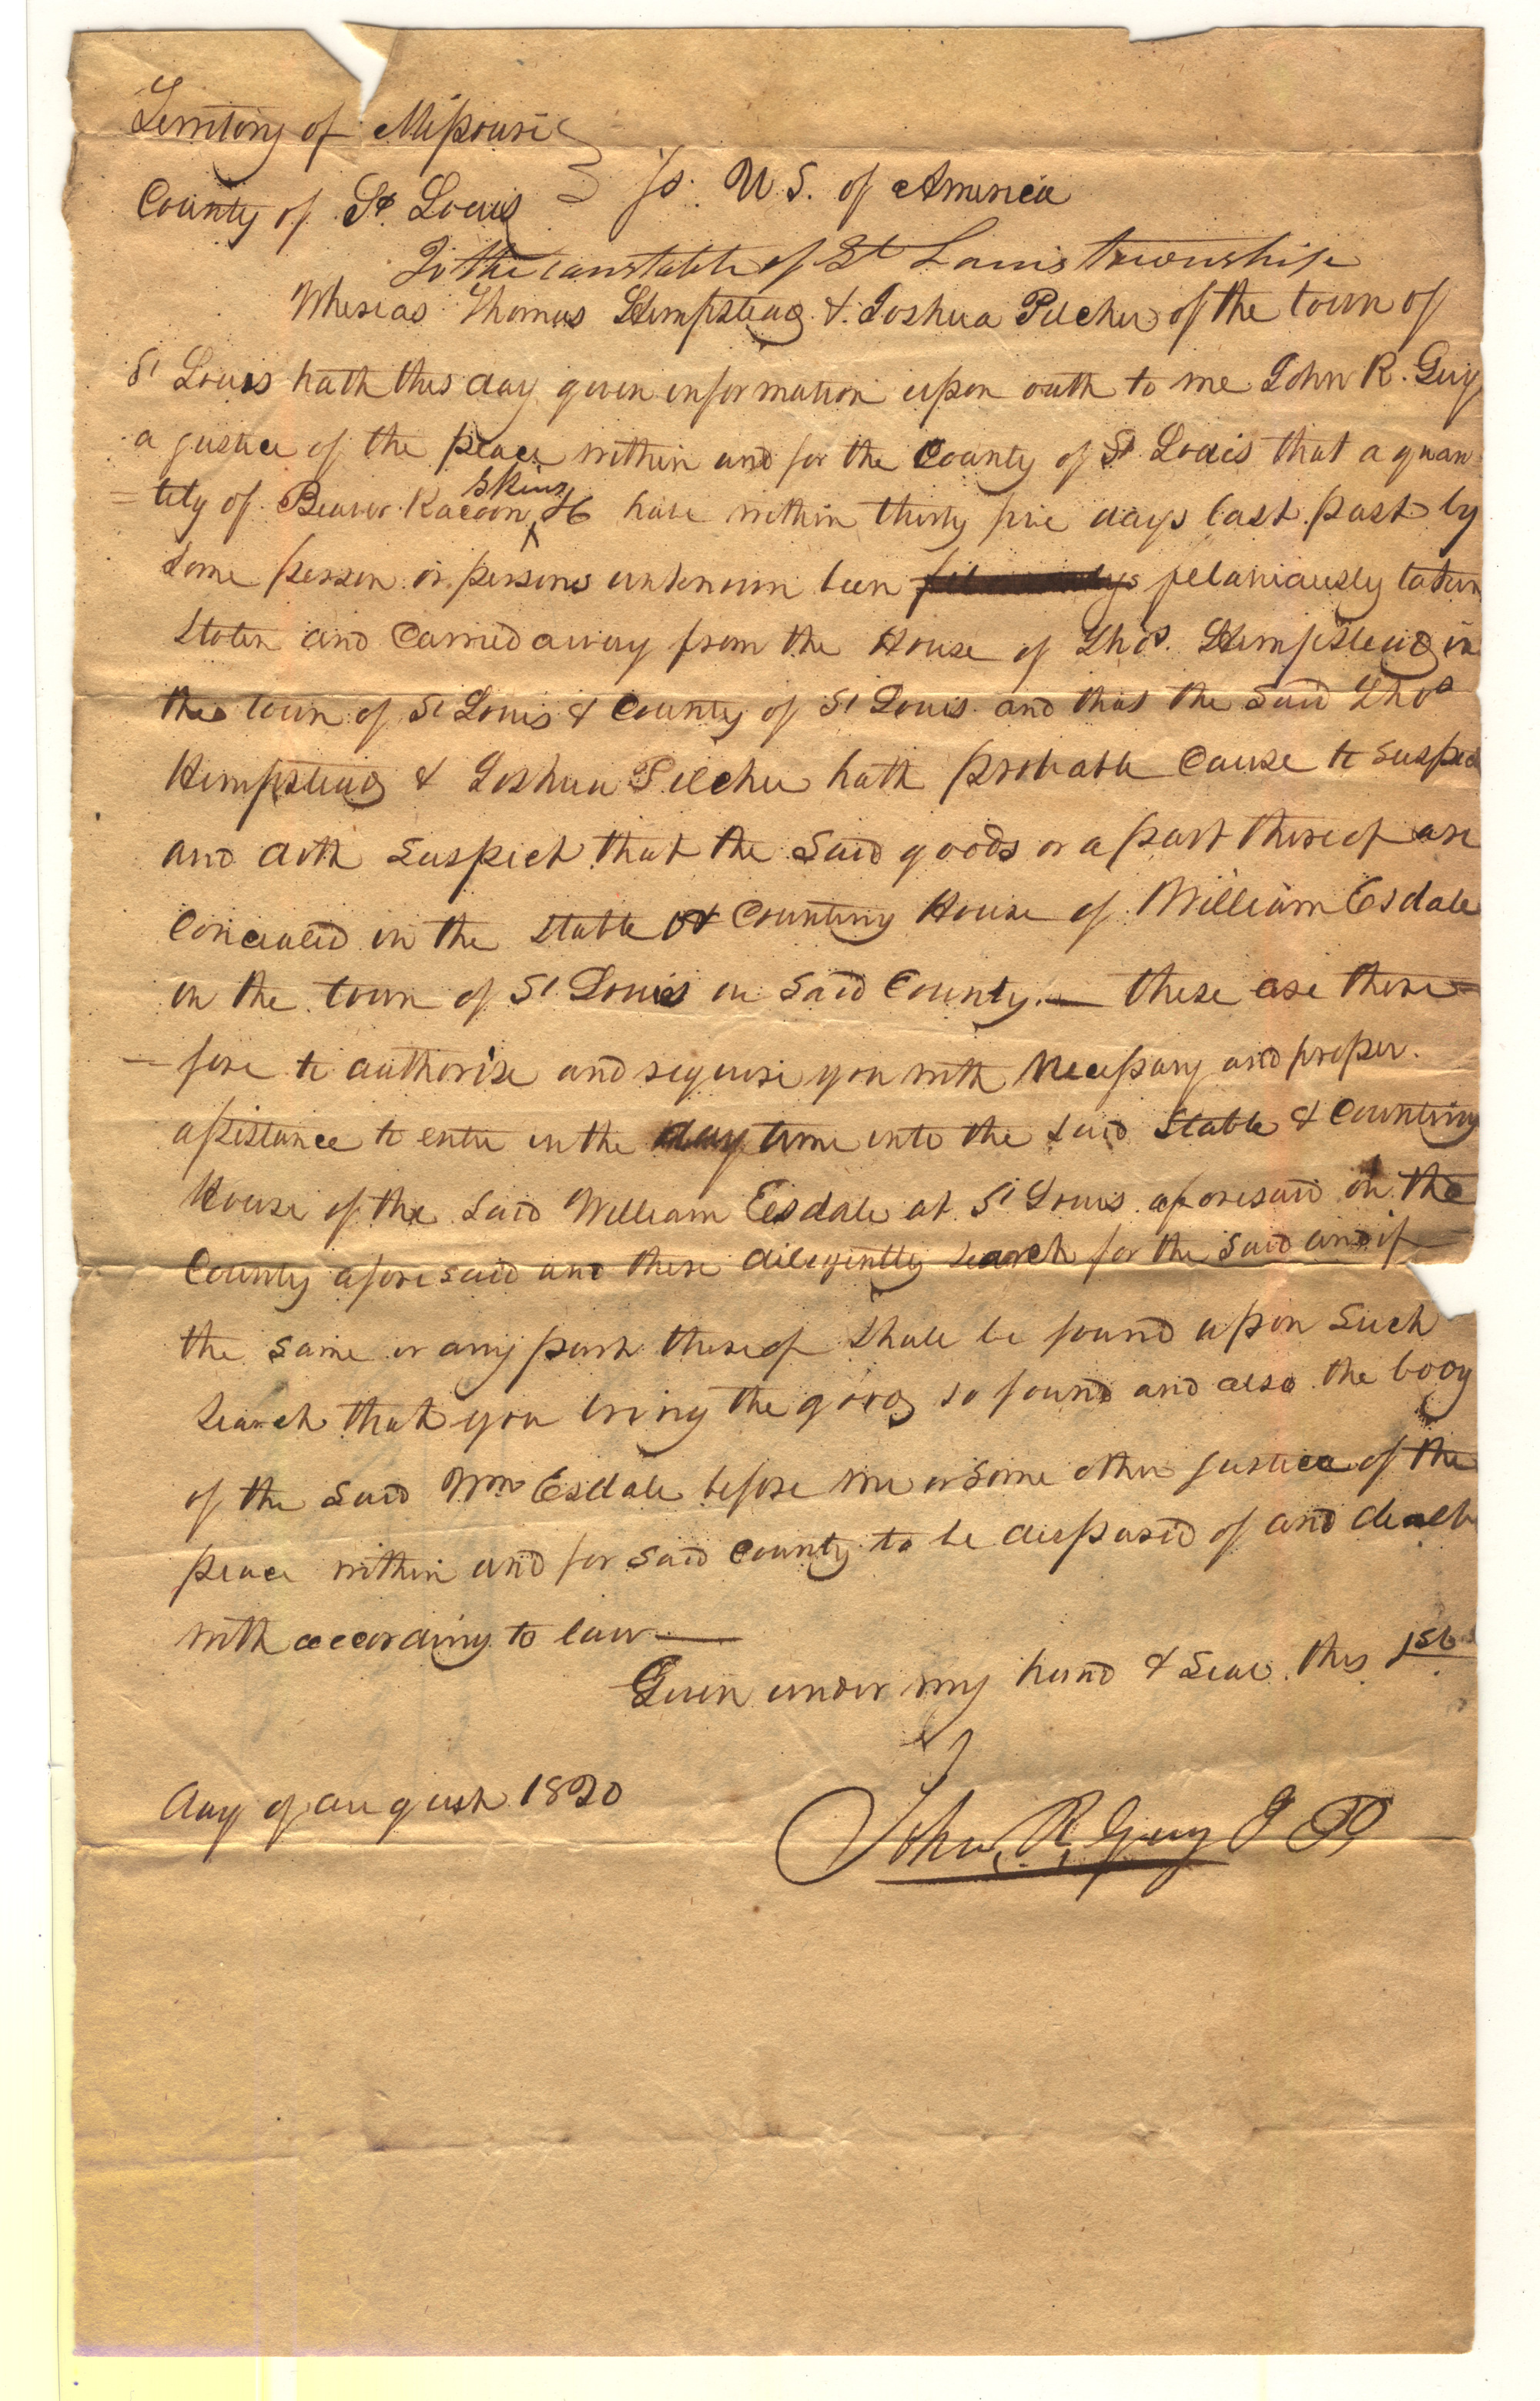 Territory of Missouri
County of St. Louis } ss. U S. of America
To the constable of St Louis township
Whereas Thomas Hempstead & Joshua Pilcher of the town of
St Louis hath this day given information upon oath to me John R. Guy
a justice of the peace within and for the County of St Louis that a quan
=tity of Beaver Racoon skins &c have within thirty five days last past by
some person or persons unknown been felaniausly taken
stolen and Carried away from the House of Thos. Hempstead in
the town of St Louis & County of St Louis and that the said Thos
Hempstead & Joshua Pilcher hath probable Cause to suspect
and doth suspect that the said goods or a part thereof are
Concealed in the stable & Counting House of William Esdale
in the town of St Louis in said County.— these are there=
—fore to authorise and require you with necessary and proper.
assistance to enter in the day time into the said stable & Counting
House of the said William Eesdale at St Louis aforesaid in the
County aforesaid and there diligently search for the said and if
the same or any part thereof shall be found upon such
search that you bring the goods so found and also the body
of the said Wm Esdale before me or some other justice of the
peace within and for said County to be disposed of and dealt
with according to law—
Given under my hand & seal this 1st
day of august 1820
John. R. Guy J P